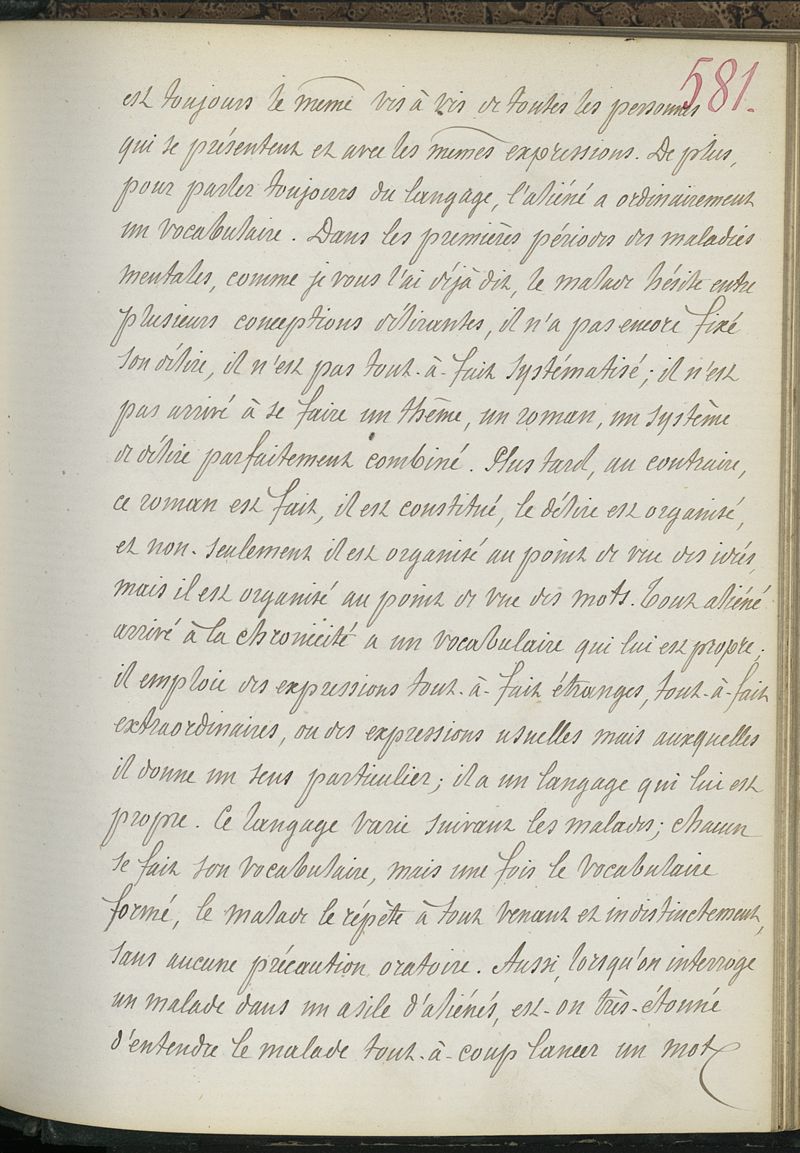 581.
est toujours le même vis à vis de toutes les personnes
qui se présentent et avec les mêmes expressions. De plus,
pour parler toujours du langage, l'aliéné a ordinairement
un vocabulaire. Dans les premières périodes des maladies
mentales, comme je vous l'ai déjà dit, le malade hésite entre
plusieurs conceptions délirantes, il n'a pas encore fixé
son délire, il n'est pas tout-à-fait systématisé; il n'est
pas arrivé à se faire un thème, un roman, un système
de délire parfaitement combiné. Plus tard, au contraire,
ce roman est fait, il est constitué, le délire est organisé,
et non-seulement il est organisé au point de vue des idées,
mais il est organisé au point de vue des mots. Tout aliéné
arrivé à la chronicité a un vocabulaire qui lui est propre;
il emploie des expressions tout-à-fait étranges, tout-à-fait
extraordinaires, ou des expressions usuelles mais auxquelles
il donne un sens particulier; il a un langage qui lui est
propre. Ce langage varie suivant les malades; chacun
se fait son vocabulaire, mais une fois le vocabulaire
formé, le malade le répète à tout venant et indistinctement,
sans aucune précaution oratoire. Aussi, lorsqu'on interroge
un malade dans un asile d'aliénés, est-on très-étonné
d'entendre le malade tout-à-coup lancer un mot